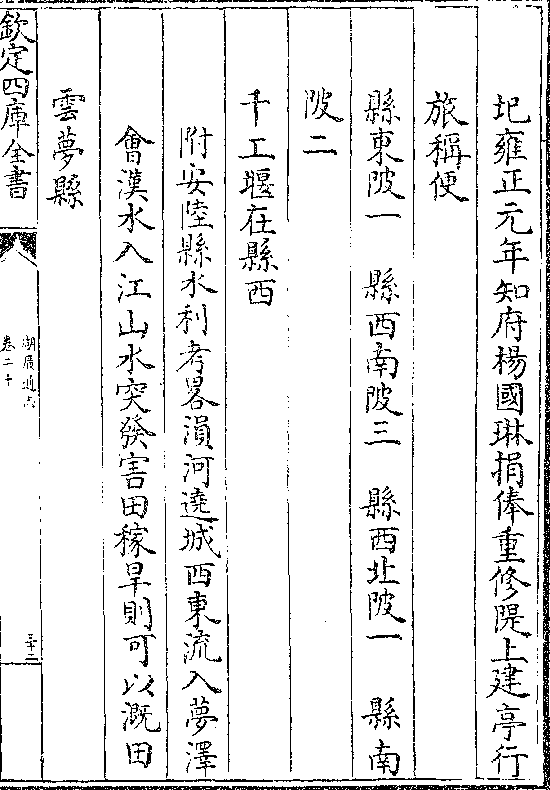 圯雍正元年知府楊國琳捐俸重修隄上建亭行
旅稱便
縣東陂一　縣西南陂三　縣西北陂一　縣南
陂二
千工堰在縣西
附安陸縣水利考畧溳河遶城西東流入夢澤
會漢水入江山水突發害田稼旱則可以溉田
雲夢縣
欽定四庫全書
湖廣通志
卷二十
三十二